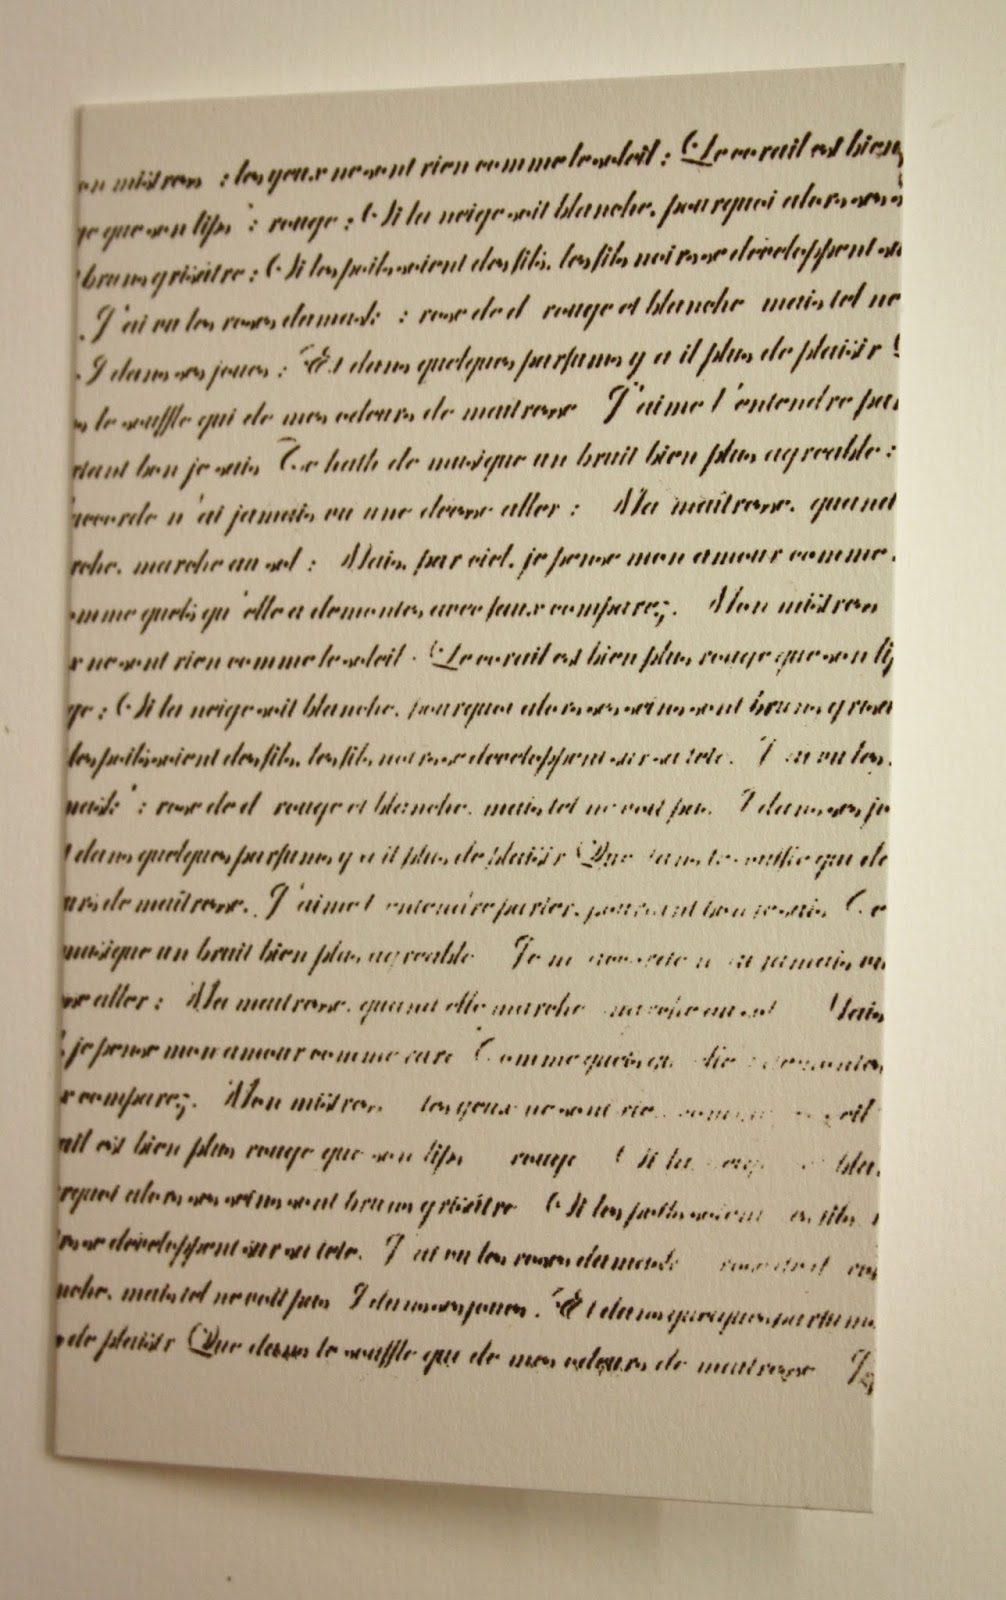 on mistress : les yeux ne sont rien comme le soleil : Le corail est bien
ge que son lips : rouge : Si la neige soit blanche, pourquoi alors ses
bruns grisâtre : Si les poils soient des fils, les fils noirs se développent su
J'ai vu les roses damask : rose de d rouge et blanche mais tel ne
I dans ses joues : Et dans quelques parfums y a il plus de plaisir
s le souffle qui de mes odeurs de maitresse J'aime l'entendre par
rtant bon je sais Ce hath de musique un bruit bien plus agréable :
accorde n'ai jamais vu une déesse aller : Ma maîtresse, quand
rche, marche au sol : Mais, par ciel, je pense mon amour comme
omme quels qu'elle a démentes avec faux comparez. Mon mistress
x ne sont rien comme le soleil. Le corail est bien plus rouge que son lip
ge : Si la neige soit blanche, pourquoi alors ses seins sont bruns grisa
les poils soient des fils, les fils noirs se développent sur sa tete. J'ai vu les
mask : rose de d rouge et blanche, mais tel ne voit pas. I dans ses jo
t dans quelques parfums y a il plus de plaisir Que dans le souffle qui de
urs de maîtresse. J'aime l'entendre parler, pourtant bon je sais Ce
musique un bruit bien plus agréable Je m'accorde n'ai jamais vu
sse aller : Ma maitresse, quand elle marche marche au sol Mais
l, je pense mon amour comme rare Comme quels qu'elle démentes
x comparez. Mon mistress les yeux ne sont rien comme soleil
ail est bien plus rouge que son lips rouge Si la neige bla
rquoi alors ses seins sont bruns grisâtre Si les poils soient des fils
rs se développent sur sa tete. J'ai vu les roses damask rose de d rou
nche, mais tel ne voit pas I dans ses joues. Et dans quelques parfums
s de plaisir Que dans le souffle qui de mes odeurs de maitresse J'a